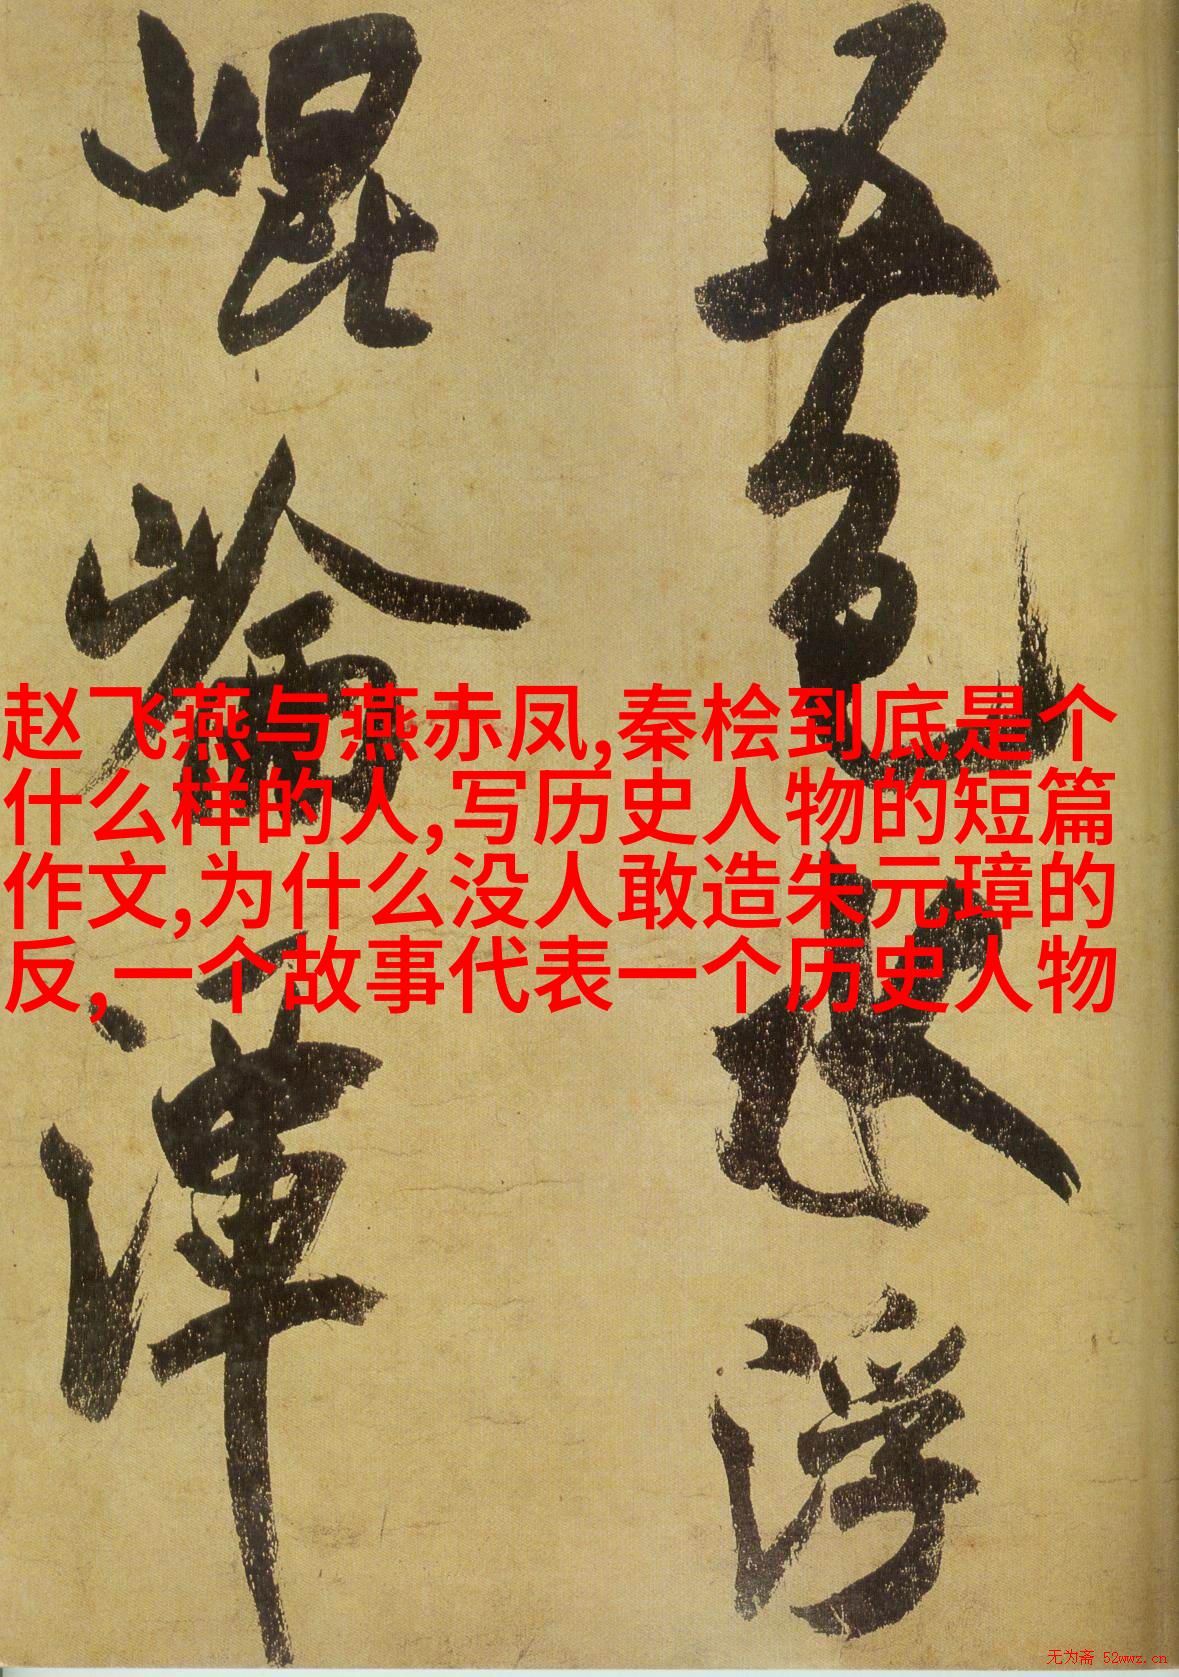 五色水浮
崐崘渾
赵飞燕与燕赤凤,秦桧到底是个
什么样的人,写历史人物的短篇
作文,为什么没人敢造朱元璋的
反,一个故事代表一个历史人物
无为斋 52wwz.cn